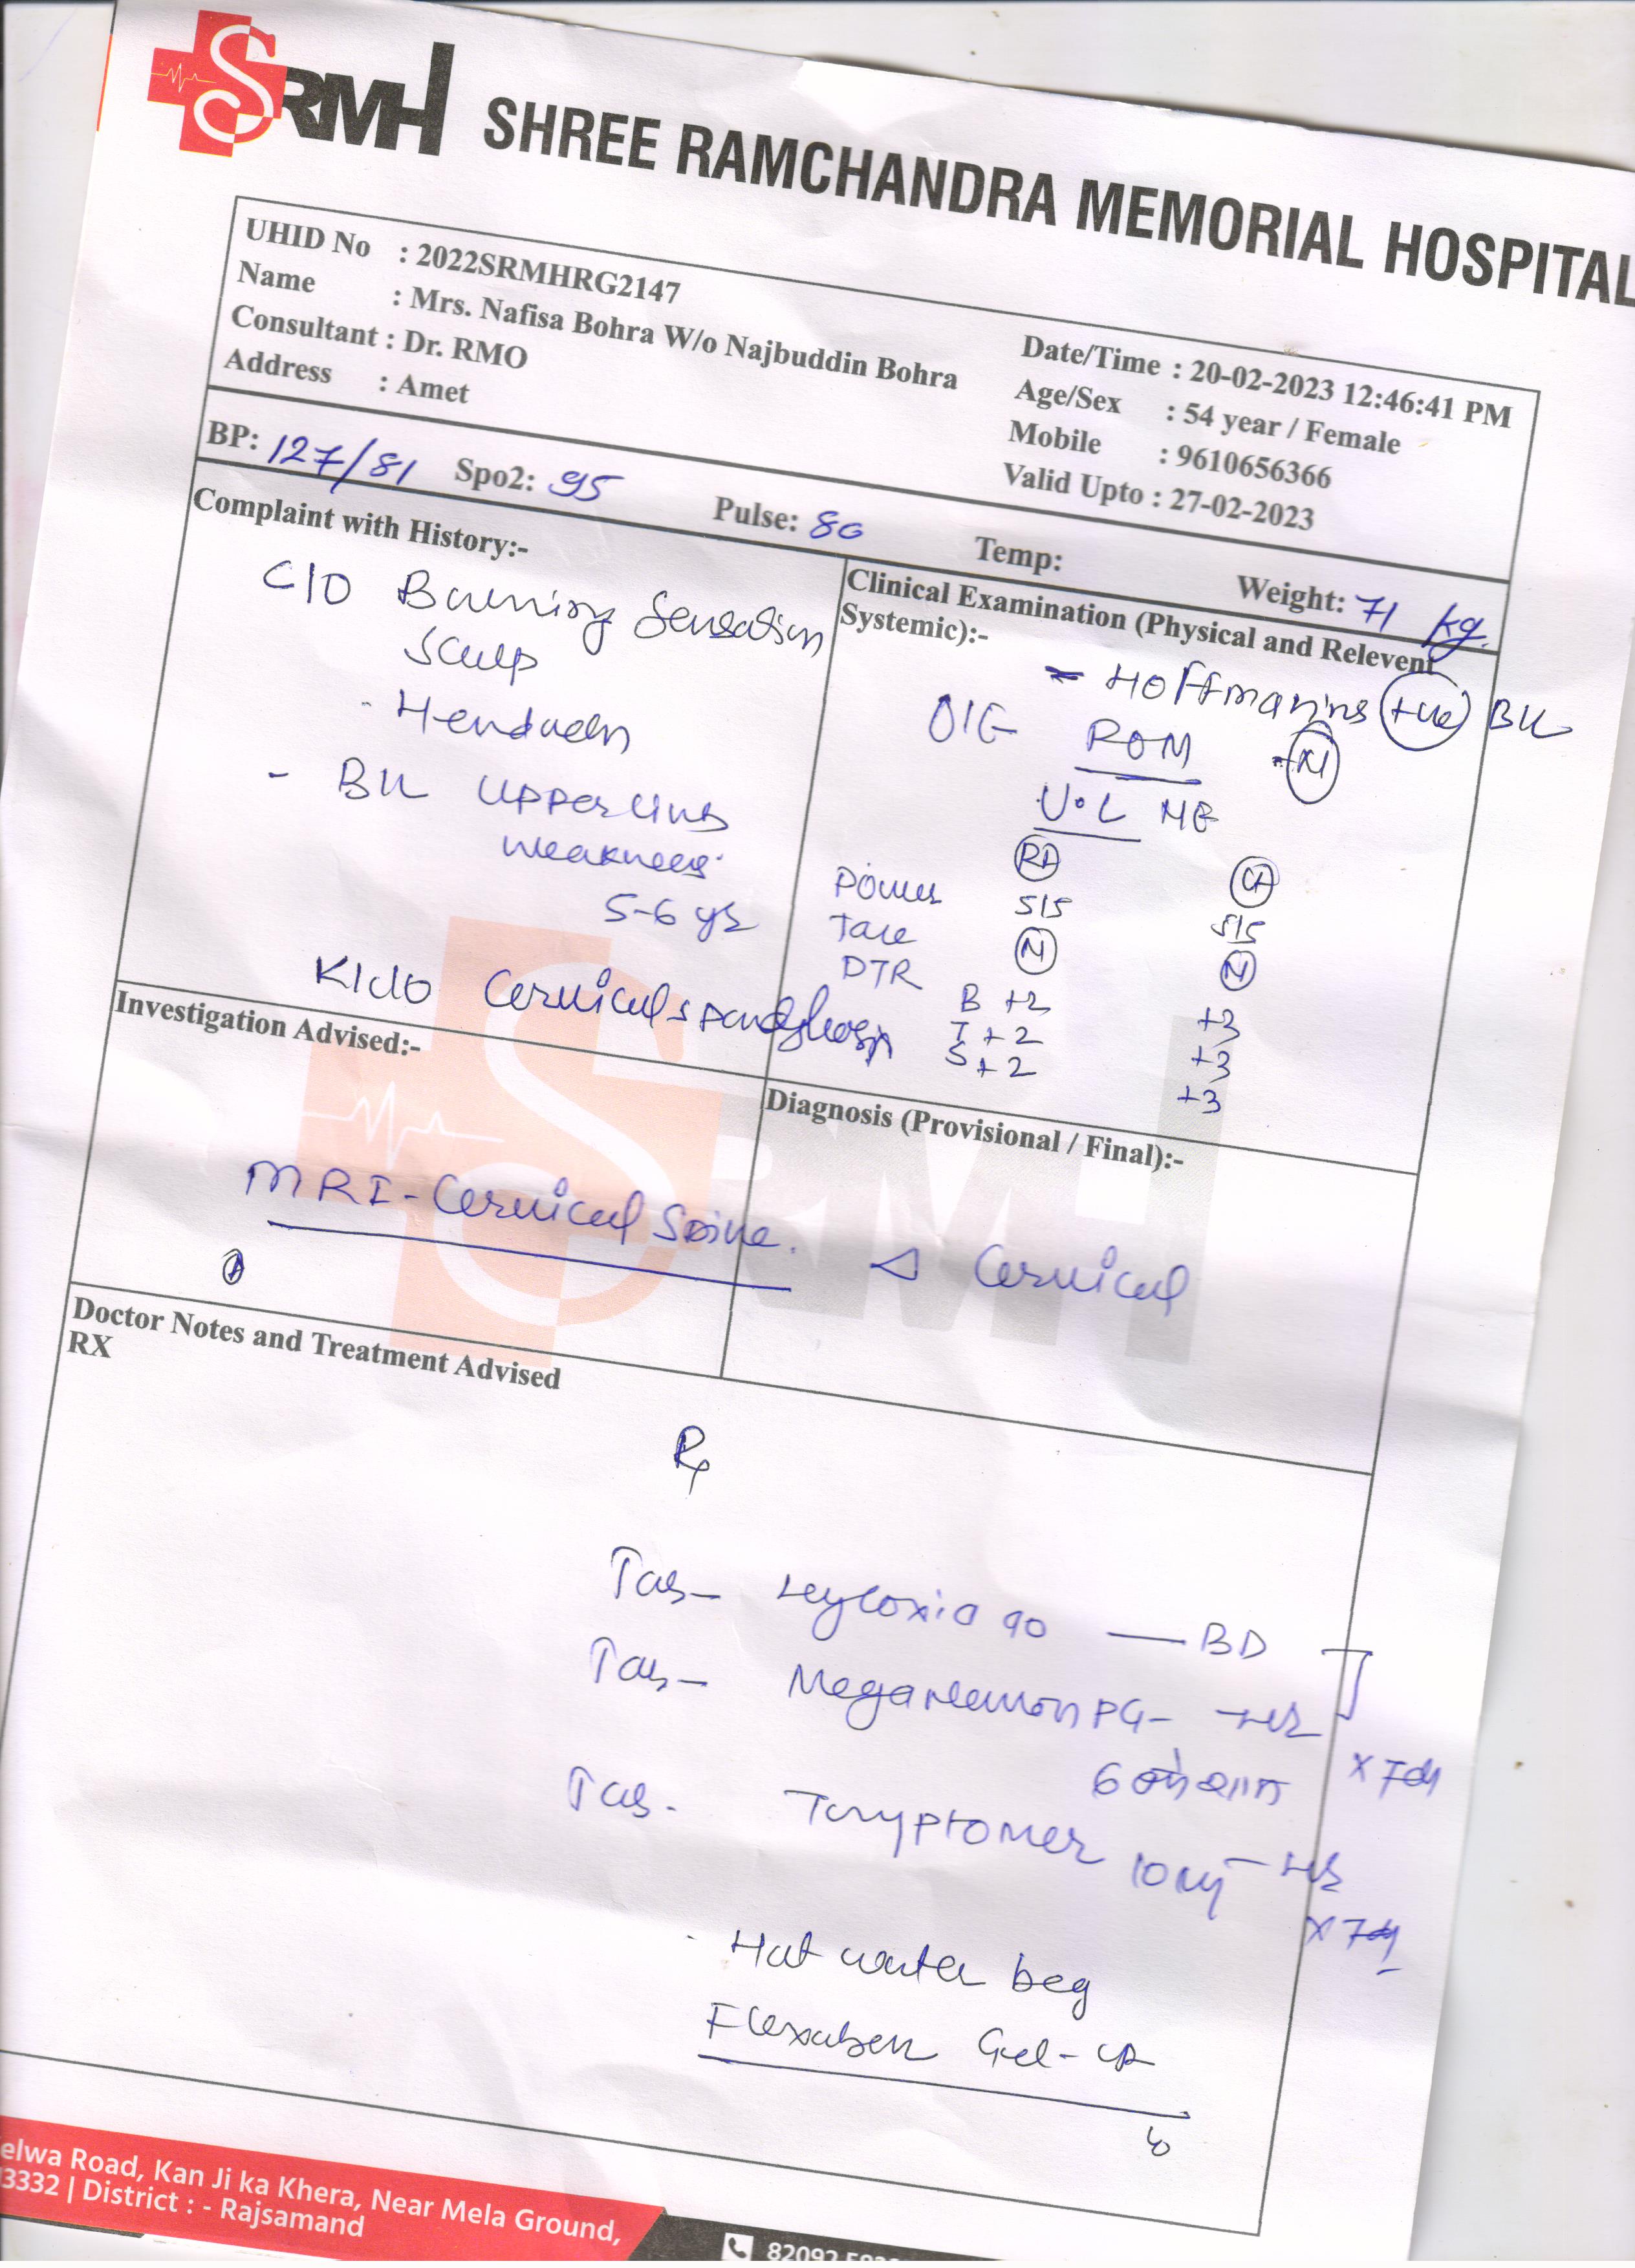 SRMH SHREE RAMCHANDRA MEMORIAL HOSPITAL
UHID No : 2022SRMHRG2147
Name : Mrs. Nafisa Bohra W/o Najbuddin Bohra
Consultant : Dr. RMO
Address : Amet
Date/Time : 20-02-2023 12:46:41 PM
Age/Sex : 54 year / Female
Mobile : 9610656366
Valid Upto : 27-02-2023
BP: 127/81 Spo2: 95 Pulse: 80 Temp: Weight: 71 kg.
Complaint with History:-
C/O Burning Sensation
- B/L Upper limb
weakness
5-6 yr
K/C/O Cervical spondylosis
Clinical Examination (Physical and Relevent
Systemic):-
- Hoffmanns +ve B/L
O/E ROM - N
U.L
Power 5/5 5/5
Tone N N
DTR B +2 +3
T +2 +3
S +2 +3
Investigation Advised:-
MRI - Cervical Spine.
Diagnosis (Provisional / Final):-
Δ Cervical
Doctor Notes and Treatment Advised
RX
Rx
Tab- 90 — BD
Tab- PG - HS
x 7d
Tab. Tryptomer 10mg - HS
x 7d
Hot water beg
Gel - LA
elwa Road, Kan Ji ka Khera, Near Mela Ground,
3332 | District : - Rajsamand
82092